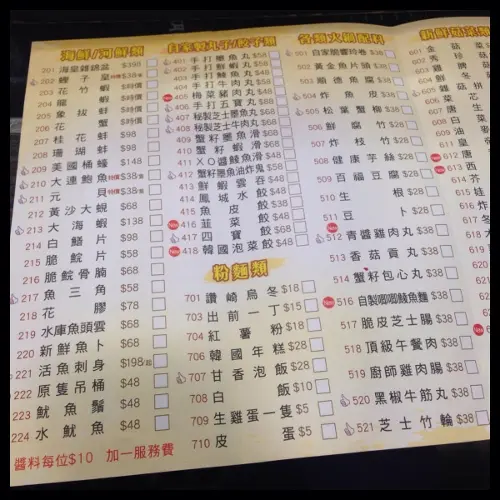 海鮮/河鮮類
201 海皇錦錦盛 $398
202 鱆子皇 特價$38
203 花竹蝦 $時價
204 龍蝦 $時價
205 象拔蚌 $時價
206 花蟹 $時價
207 桂花蚌 $98
208 珊瑚蚌 $98
209 美國桶蠔 $148
210 大連鮑魚 特價$38
211 元貝 特價$38
212 黃沙大蜆 $68
213 大海蝦 $138
214 白鱔片 $98
215 脆鯇片 $58
216 脆鯇骨腩 $68
217 魚三角 $58
218 花膠 $78
219 水庫魚頭雲 $68
220 新鮮魚卜 $68
221 活魚刺身 $198/起
222 原隻吊桶 $48
223 魷魚鬚 $48
224 水魷魚 $48
醬料每位$10 加一服務費
自家製丸子/餃子類
401 手打墨魚丸 $58
402 手打蝦丸 $58
403 手打鯪魚丸 $48
404 手打牛肉丸 $58
405 梅菜豬肉丸 $48
406 手打五寶丸 $58
407 秘製芝士墨魚丸 $68
408 秘製芝士牛肉丸 $68
409 蟹籽墨魚滑 $68
410 蟹籽蝦滑 $68
411 XO醬鯪魚滑 $58
412 蟹籽墨魚油炸鬼 $58
413 鮮蝦雲吞 $48
414 鳳城水餃 $48
415 魚皮餃 $38
New 416 韮菜餃 $48
New 417 四寶餃 $48
New 418 韓國泡菜餃 $48
粉麵類
701 讚崎烏冬 $18
703 出前一丁 $15
704 紅薯粉 $18
706 韓國年糕 $28
707 甘香泡飯 $28
708 白飯 $10
709 生雞蛋一隻 $5
710 皮蛋 $5
各類火鍋配料
501 自家脆響玲卷 $38
502 黃金魚片頭 $38
503 順德魚腐 $38
504 炸魚皮 $38
505 松葉蟹柳 $38
506 鮮腐竹 $28
507 炸枝竹 $28
508 健康芋絲 $28
509 百福豆腐 $28
510 生根 $28
511 豆卜 $28
New 512 青醬雞肉丸 $38
513 香菇貢丸 $38
514 蟹籽包心丸 $38
New 516 自製唧唧鯪魚麵 $38
517 脆皮芝士腸 $38
518 頂級午餐肉 $38
519 廚師雞肉腸 $38
520 黑椒牛筋丸 $38
521 芝士竹輪 $38
新鮮菇菜類
601 金菇
602 秀珍菇
603
605
606 雜菌拼
607 菜芯
608 唐芯
609 白菜
610 油麥
611 韓帝
New 612 唐
New 613 西
614 芥
615 娃
616
617
618
619
620
621
622
623
624